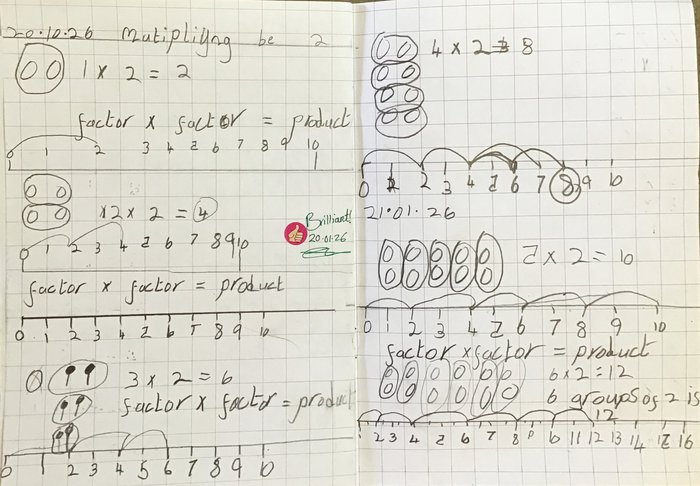 20.10.26 Mutipliyng be 2
1 x 2 = 2
factor x factor = product
0 1 2 3 4 5 6 7 8 9 10
x2 x 2 = 4
Brilliant!
20.01.26
0 1 2 3 4 5 6 7 8 9 10
factor x factor = product
0 1 2 3 4 5 6 7 8 9 10
3 x 2 = 6
factor x factor = product
0 1 2 3 4 5 6 7 8 9 10
4 x 2 = 8
0 1 2 3 4 5 6 7 8 9 10
21.01.26
5 x 2 = 10
0 1 2 3 4 5 6 7 8 9 10
factor x factor = product
6 x 2 = 12
6 groups og 2 is
12
1 2 3 4 6 7 8 9 10 11 12 13 14 15 16